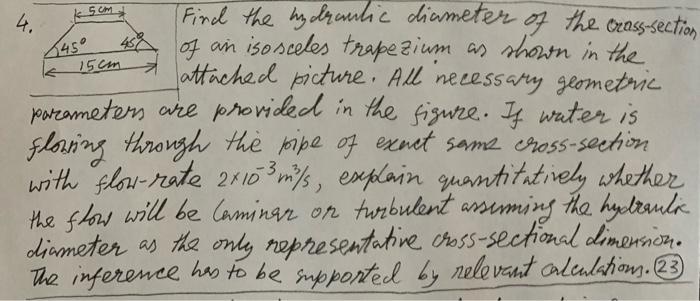 4.
5 cm
45° 45°
15 cm
Find the hydraulic diameter of the cross-section
of an isosceles trapezium as shown in the
attached picture. All necessary geometric
parameters are provided in the figure. If water is
flowing through the pipe of exact same cross-section
with flow-rate 2×10⁻³ m³/s, explain quantitatively whether
the flow will be laminar or turbulent assuming the hydraulic
diameter as the only representative cross-sectional dimension.
The inference has to be supported by relevant calculations. (23)